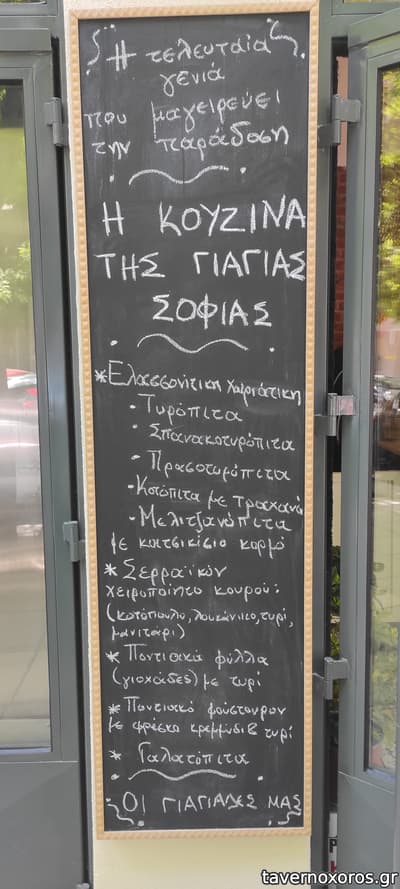 Η τελευταία
γενιά
που μαγειρεύει
την παράδοση
Η ΚΟΥΖΙΝΑ
ΤΗΣ ΓΙΑΓΙΑΣ
ΣΟΦΙΑΣ
*Ελασσονίτικη χωριάτικη
-Τυρόπιτα
-Σπανακοτυρόπιτα
-Πρασοτυρόπιτα
-Κοτόπιτα με τραχανά
-Μελιτζανόπιτα
με κατσικίσιο κορμό
*Σερραϊκών
χειροποίητο κουρού:
(κοτόπουλο, λουκάνικο, τυρί,
μανιτάρι)
*Ποντιακά φύλλα
(γιοχάδες) με τυρί
*Ποντιακό φούστουρον
με φρέσκο κρεμμύδι & τυρί
* Γαλατόπιτα
ΟΙ ΓΙΑΓΙΑΔΕΣ ΜΑΣ
tavernoxoros.gr